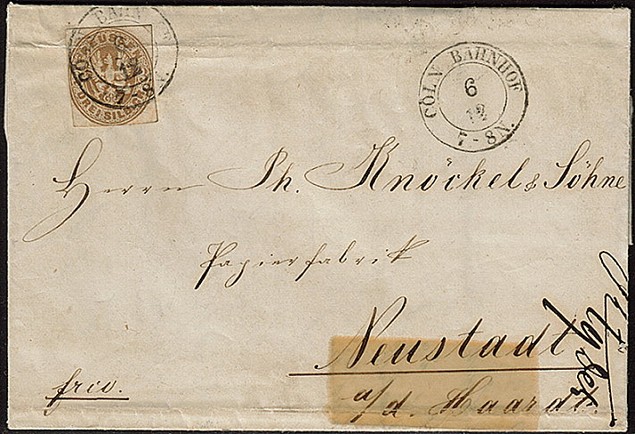 CÖLN BAHNHOF
6
12
7-8N.
PREUSSEN
DREI SILB. GR.
Herrn Ph. Knöckel & Söhne
Papierfabrik
Neustadt
a/d. Haardt.
frco.